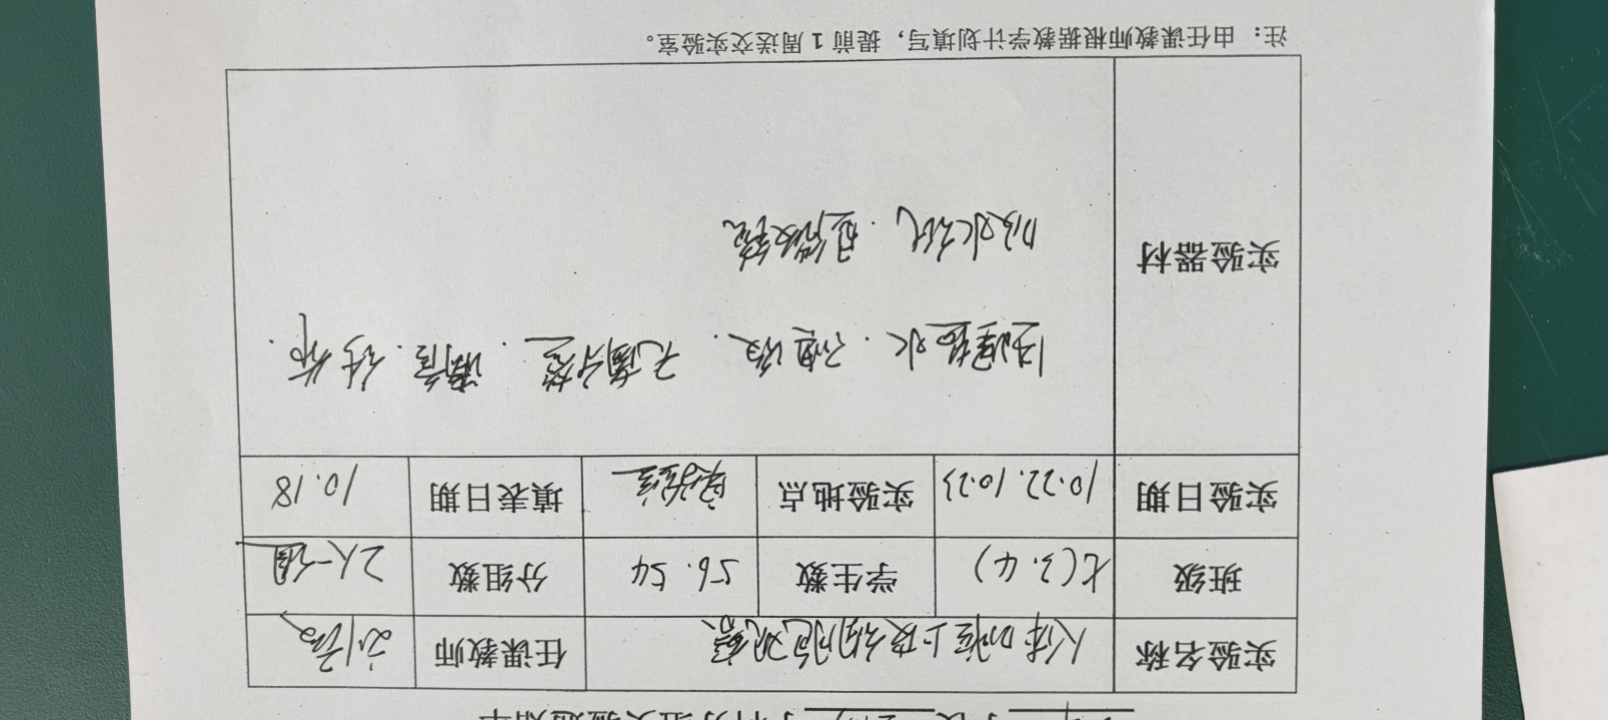 学科分组实验通知单
实验名称 人体口腔上皮细胞观察 任课教师 刘
班级 七(3.4) 学生数 56.54 分组数 2人一组
实验日期 10.22.10.23 实验地点 实验室 填表日期 10.18
实验器材
生理盐水.碘液.牙签.滴管.纱布.
吸水纸.显微镜
注：由任课教师根据教学计划填写，提前1周送交实验室。